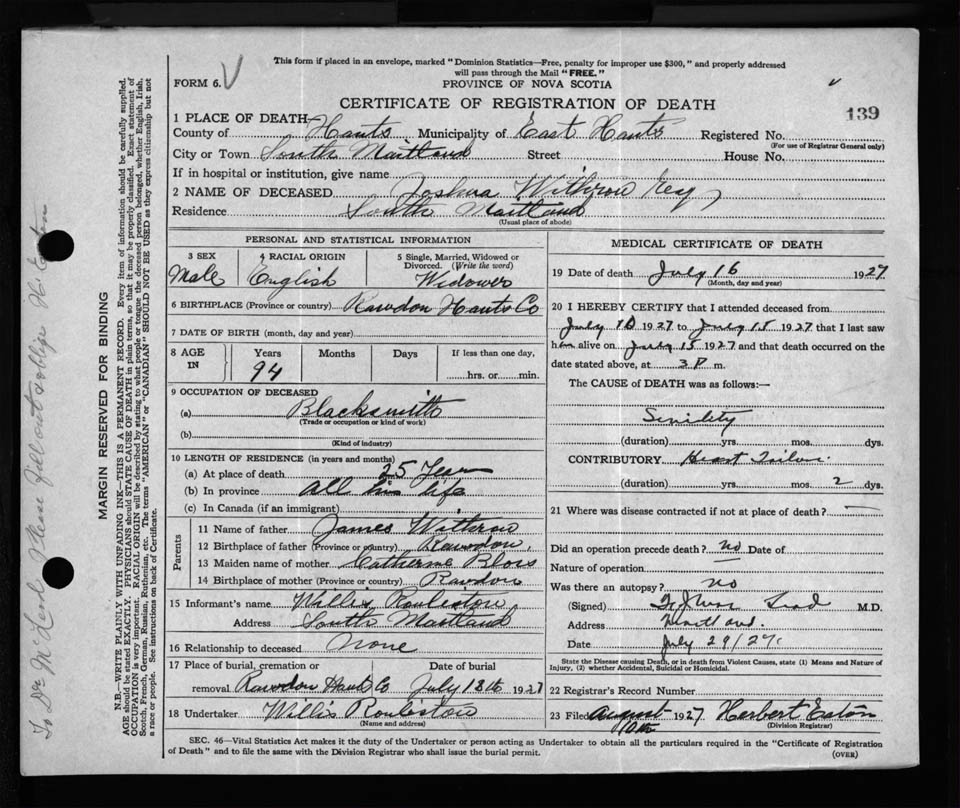 This form if placed in an envelope, marked "Dominion Statistics—Free, penalty for improper use $300," and properly addressed
will pass through the Mail "FREE."
FORM 6. V
PROVINCE OF NOVA SCOTIA
CERTIFICATE OF REGISTRATION OF DEATH
139
1 PLACE OF DEATH—
County of Hants Municipality of East Hants Registered No.
(For use of Registrar General only)
City or Town South Maitland Street House No.
If in hospital or institution, give name
2 NAME OF DECEASED Joshua Withrow
Residence South Maitland
(Usual place of abode)
PERSONAL AND STATISTICAL INFORMATION
3 SEX 4 RACIAL ORIGIN 5 Single, Married, Widowed or
Divorced. (Write the word)
Male English Widower
6 BIRTHPLACE (Province or country) Rawdon Hants Co
7 DATE OF BIRTH (month, day and year)
8 AGE IN Years Months Days If less than one day,
94 hrs. or min.
9 OCCUPATION OF DECEASED
(a) Blacksmith
(Trade or occupation or kind of work)
(b)
(Kind of industry)
10 LENGTH OF RESIDENCE (in years and months)
(a) At place of death 25 Years
(b) In province all his life
(c) In Canada (if an immigrant)
Parents
11 Name of father James Withrow
12 Birthplace of father (Province or country) Rawdon,
13 Maiden name of mother Catherine Blois
14 Birthplace of mother (Province or country) Rawdon
15 Informant's name Willis Roulston
Address South Maitland
16 Relationship to deceased None
17 Place of burial, cremation or Date of burial
removal Rawdon Hants Co July 18th 1927
18 Undertaker Willis Roulston
(Name and address)
MEDICAL CERTIFICATE OF DEATH
19 Date of death July 16 1927
(Month, day and year)
20 I HEREBY CERTIFY that I attended deceased from
July 10 1927 to July 15 1927 that I last saw
him alive on July 15 1927 and that death occurred on the
date stated above, at 3 P m.
The CAUSE of DEATH was as follows:—
Senility
(duration) yrs. mos. dys.
CONTRIBUTORY Heart Failure
(duration) yrs. mos. 2 dys.
21 Where was disease contracted if not at place of death? —
Did an operation precede death? no Date of
Nature of operation
Was there an autopsy? no
(Signed) M.D.
Address Maitland.
Date July 29/27
State the Disease causing Death, or in death from Violent Causes, state (1) Means and Nature of
Injury, (2) whether Accidental, Suicidal or Homicidal.
22 Registrar's Record Number
23 Filed August 10th 1927 Herbert Eaton
(Division Registrar)
SEC. 46—Vital Statistics Act makes it the duty of the Undertaker or person acting as Undertaker to obtain all the particulars required in the "Certificate of Registration
of Death" and to file the same with the Division Registrar who shall issue the burial permit.
(OVER)
MARGIN RESERVED FOR BINDING
N.B.—WRITE PLAINLY WITH UNFADING INK—THIS IS A PERMANENT RECORD. Every item of information should be carefully supplied.
AGE should be stated EXACTLY. PHYSICIANS should STATE CAUSE OF DEATH in plain terms, so that it may be properly classified. Exact statement of
OCCUPATION is very important. RACIAL ORIGIN will be described by stating to what people or tongue the deceased person belonged, whether English, Irish,
Scotch, French, German, Russian, Ruthenian, etc. The terms "AMERICAN" or "CANADIAN" SHOULD NOT BE USED as they express citizenship but not
a race or people. See instructions on back of Certificate.
Please fill out & oblige H. Eaton